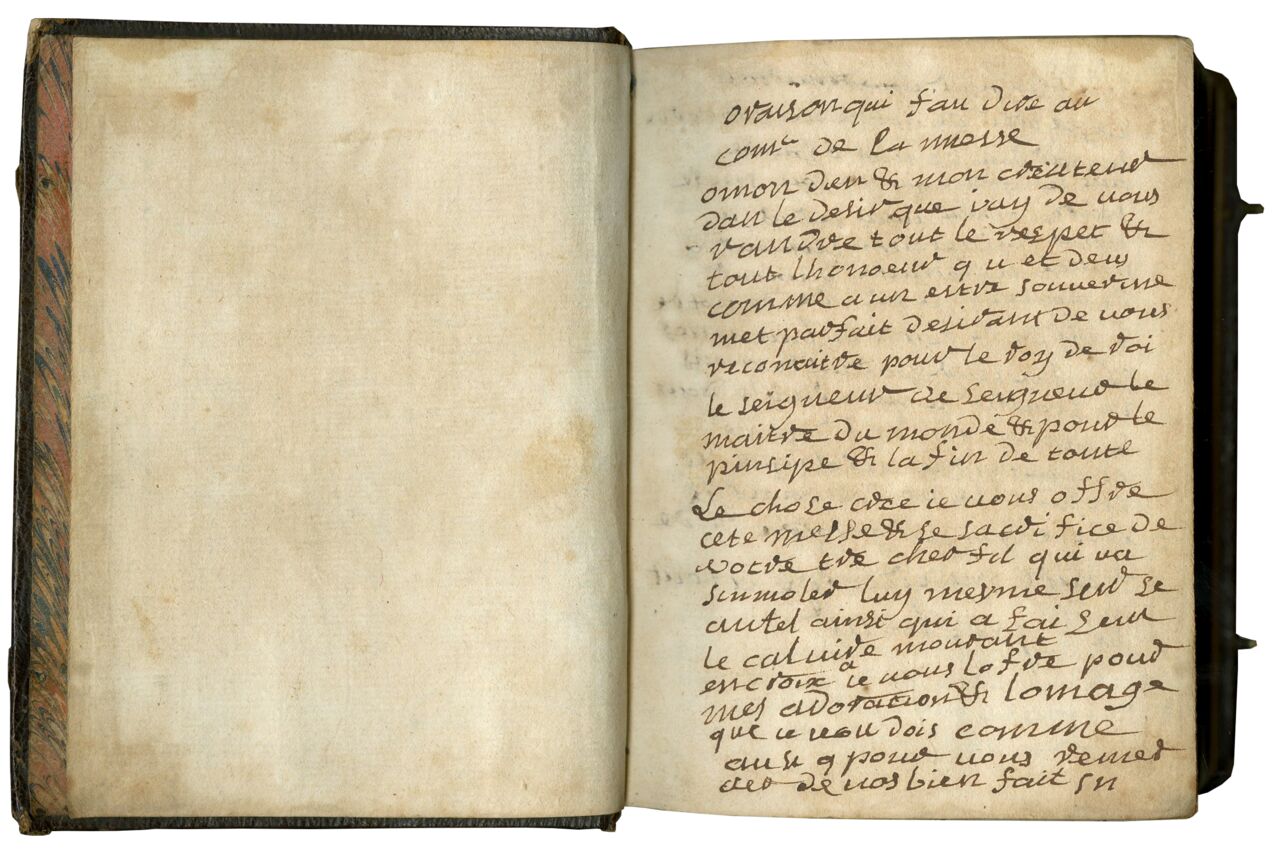 oraison qui fau dire au
com^e de la messe
omon dieu & mon créateur
dan le desir que iay de vous
randre tout le respet &
tout lhonoeur qu et deus
comme a un estre souverine
met parfait desirant de vous
reconaitre pour le roy de roi
le seigneur de seigneur le
maitre du monde & pour le
pinsipe & la fin de toute
Le chose cree ie vous offre
cete messe & se sacrifice de
votre tre cher fil qui va
sinmoler luy mesme seur se
autel ainsi qui a fai seur
le calvire mourant
encroix ie vous lofre pour
mes adoration & lomage
que ie vou dois comme
ausi q pour vous remer
cier de vos bien fait